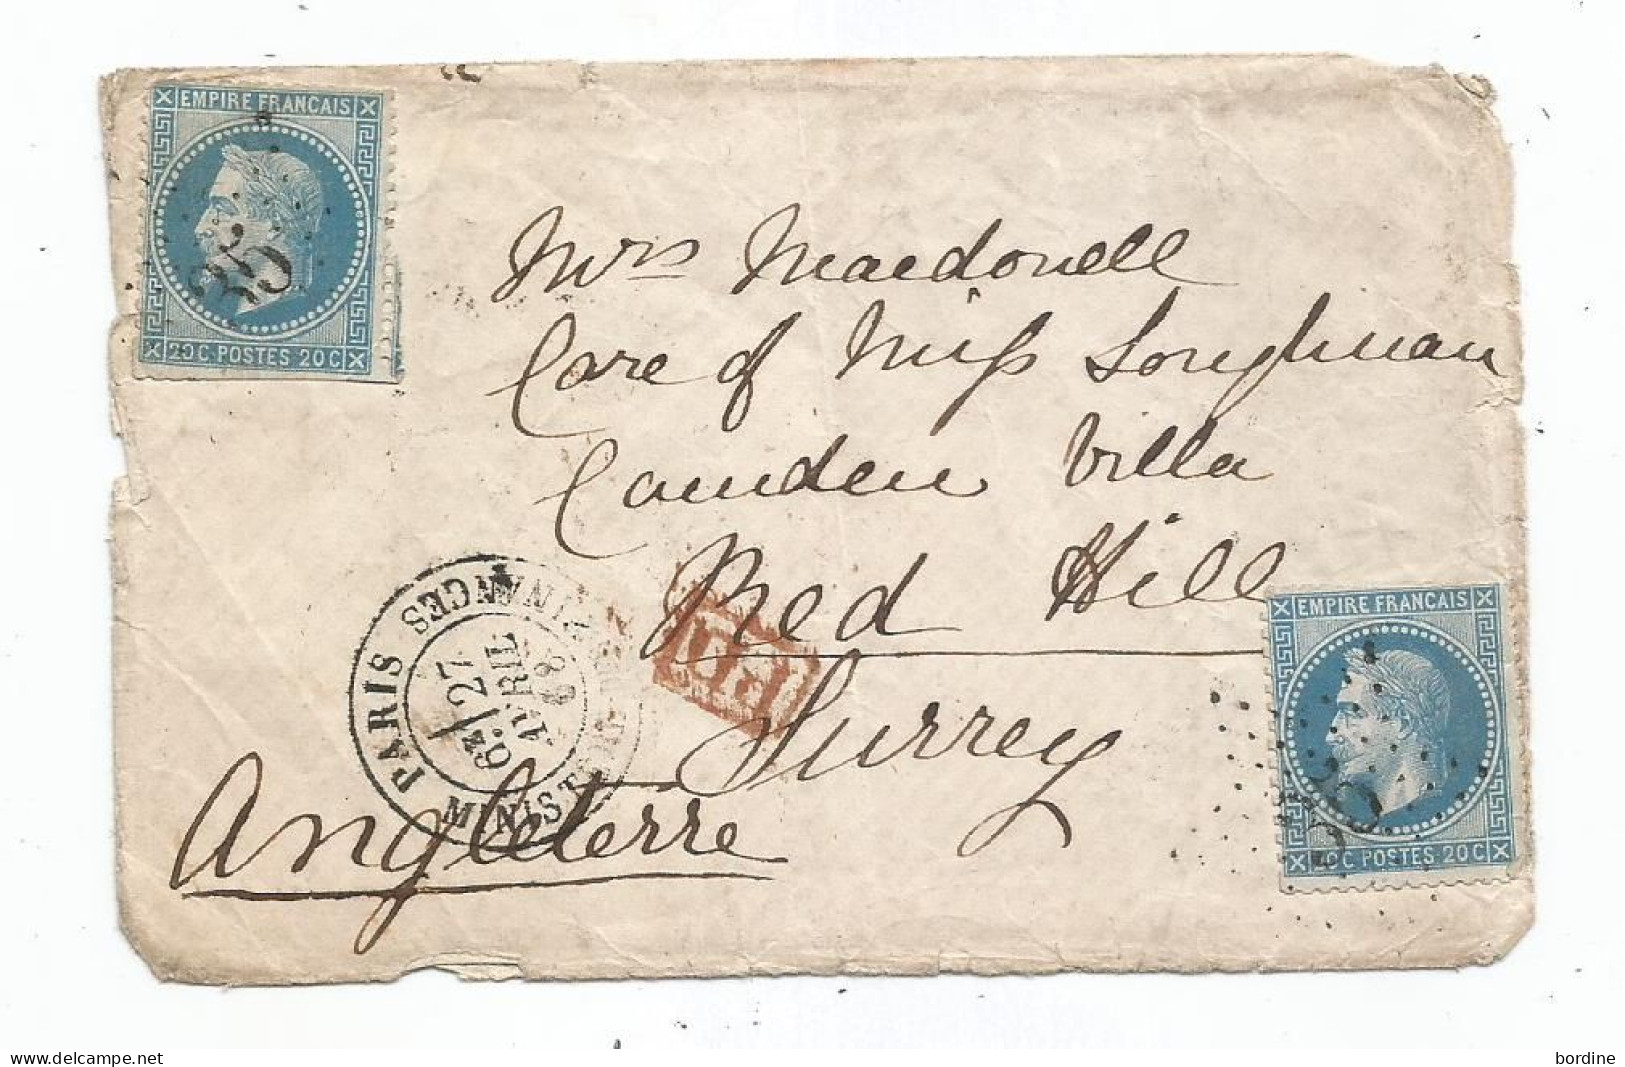 EMPIRE FRANCAIS
35
20 C. POSTES 20 C
Mrs Macdonell
Care of Miss Loughnan
Camden Villa
Red Hill
Surrey
Angleterre
PARIS
MINISTERE DES FINANCES
6E
27
AVRIL
68
PD
EMPIRE FRANCAIS
35
20 C. POSTES 20 C
www.delcampe.net
bordine